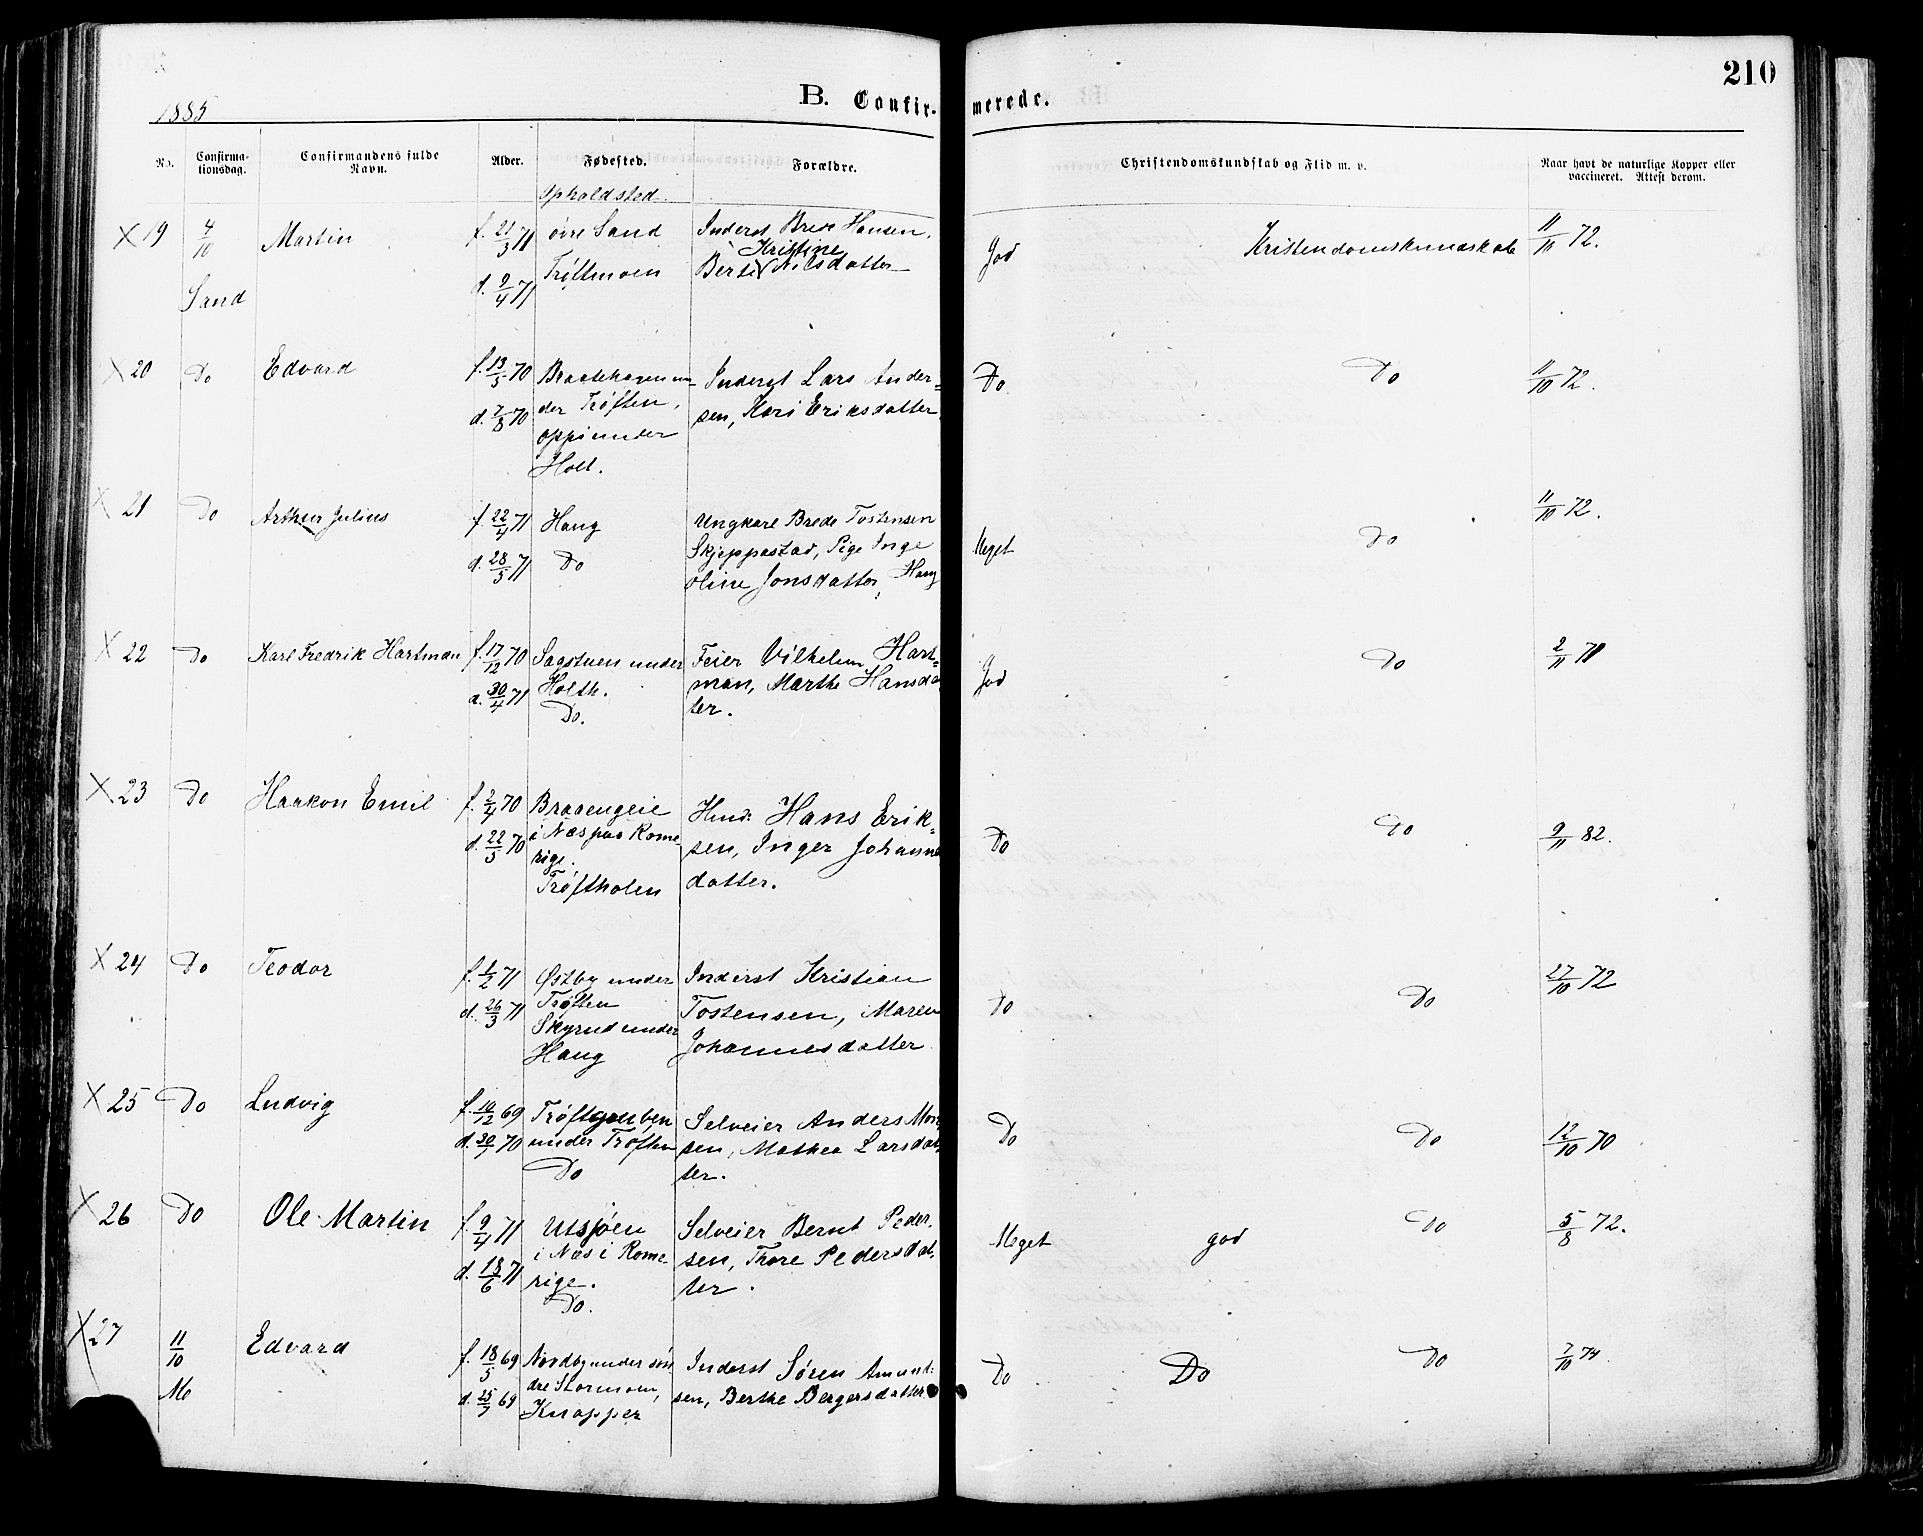 210
1885
B. Confirmerede.
No. Confirmationsdag. Confirmandens fulde Navn. Alder. Fødested. Forældre. Christendomskundskab og Flid m. v. Naar havt de naturlige Kopper eller vaccineret. Attest derom.
Opholdsted.
X 19 4/10 Martin f. 21/3 71 øvre Sand Inderst Brede Hansen, god Kristendomskundskab 11/10 72.
Kristine
Sand d. 9/4 71 Trøftmoen Berte V Nilsdatter
X 20 Do Edvard f. 13/5 70 Braatehagen un- Inderst Lars Ander= Do Do 11/10 72.
d. 7/8 70 der Trøften, sen, Kari Eriksdatter
oppi under
Holt.
X 21 Do Arthur Julius f. 22/4 71 Haug Ungkarl Brede Tostensen Meget Do 11/10 72.
d. 28/5 71 Do Skjeppastad, Pige Inge
oline Jonsdatter, Haug
X 22 Do Karl Fredrik Hartman f. 17/12 70 Sagstuen under Feier Vilhelm Hart= god Do 2/11 71
d. 30/4 71 Holth. man, Marthe Hansda
Do. ter.
X 23 Do Haakon Emil f. 2/4 70 Braaengeie Husm. Hans Erik= Do Do 9/11 82.
d. 22/5 70 i Næs paa Rome- sen, Inger Johanne
rige. datter.
Trøftholen
X 24 Do Teodor f. 1/2 71 Østby under Inderst Kristian Do Do 27/10 72
d. 26/3 71 Trøften Tostensen, Maren
Skyrud under Johannesdatter
Haug
X 25 Do Ludvig f. 10/12 69 Trøftgruben Selveier Anders Mon Do Do 12/10 70
d. 30/1 70 under Trøften sen, Mathea Larsdat
Do ter.
X 26 Do Ole Martin f. 9/4 71 Utsjøen Selveier Bernt Peder. Meget god Do 5/8 72.
d. 18/6 71 i Næs i Rome- sen, Thore Pedersdat.
rige. ter.
Do.
X 27 11/10 Edvard f. 18/5 69 Nordby under søn Inderst Søren Amund. Do Do Do 7/10 74
Mo d. 25/7 69 dre Stormoen, sen, Berthe Bergersdatter
Knapper